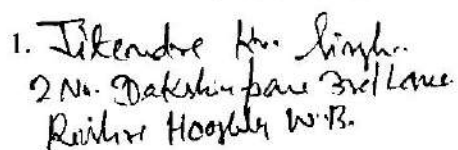 1. Jitendra Kr. Singh.
2 No. Dakshinpara 3rd Lane
Rishra Hooghly W.B.